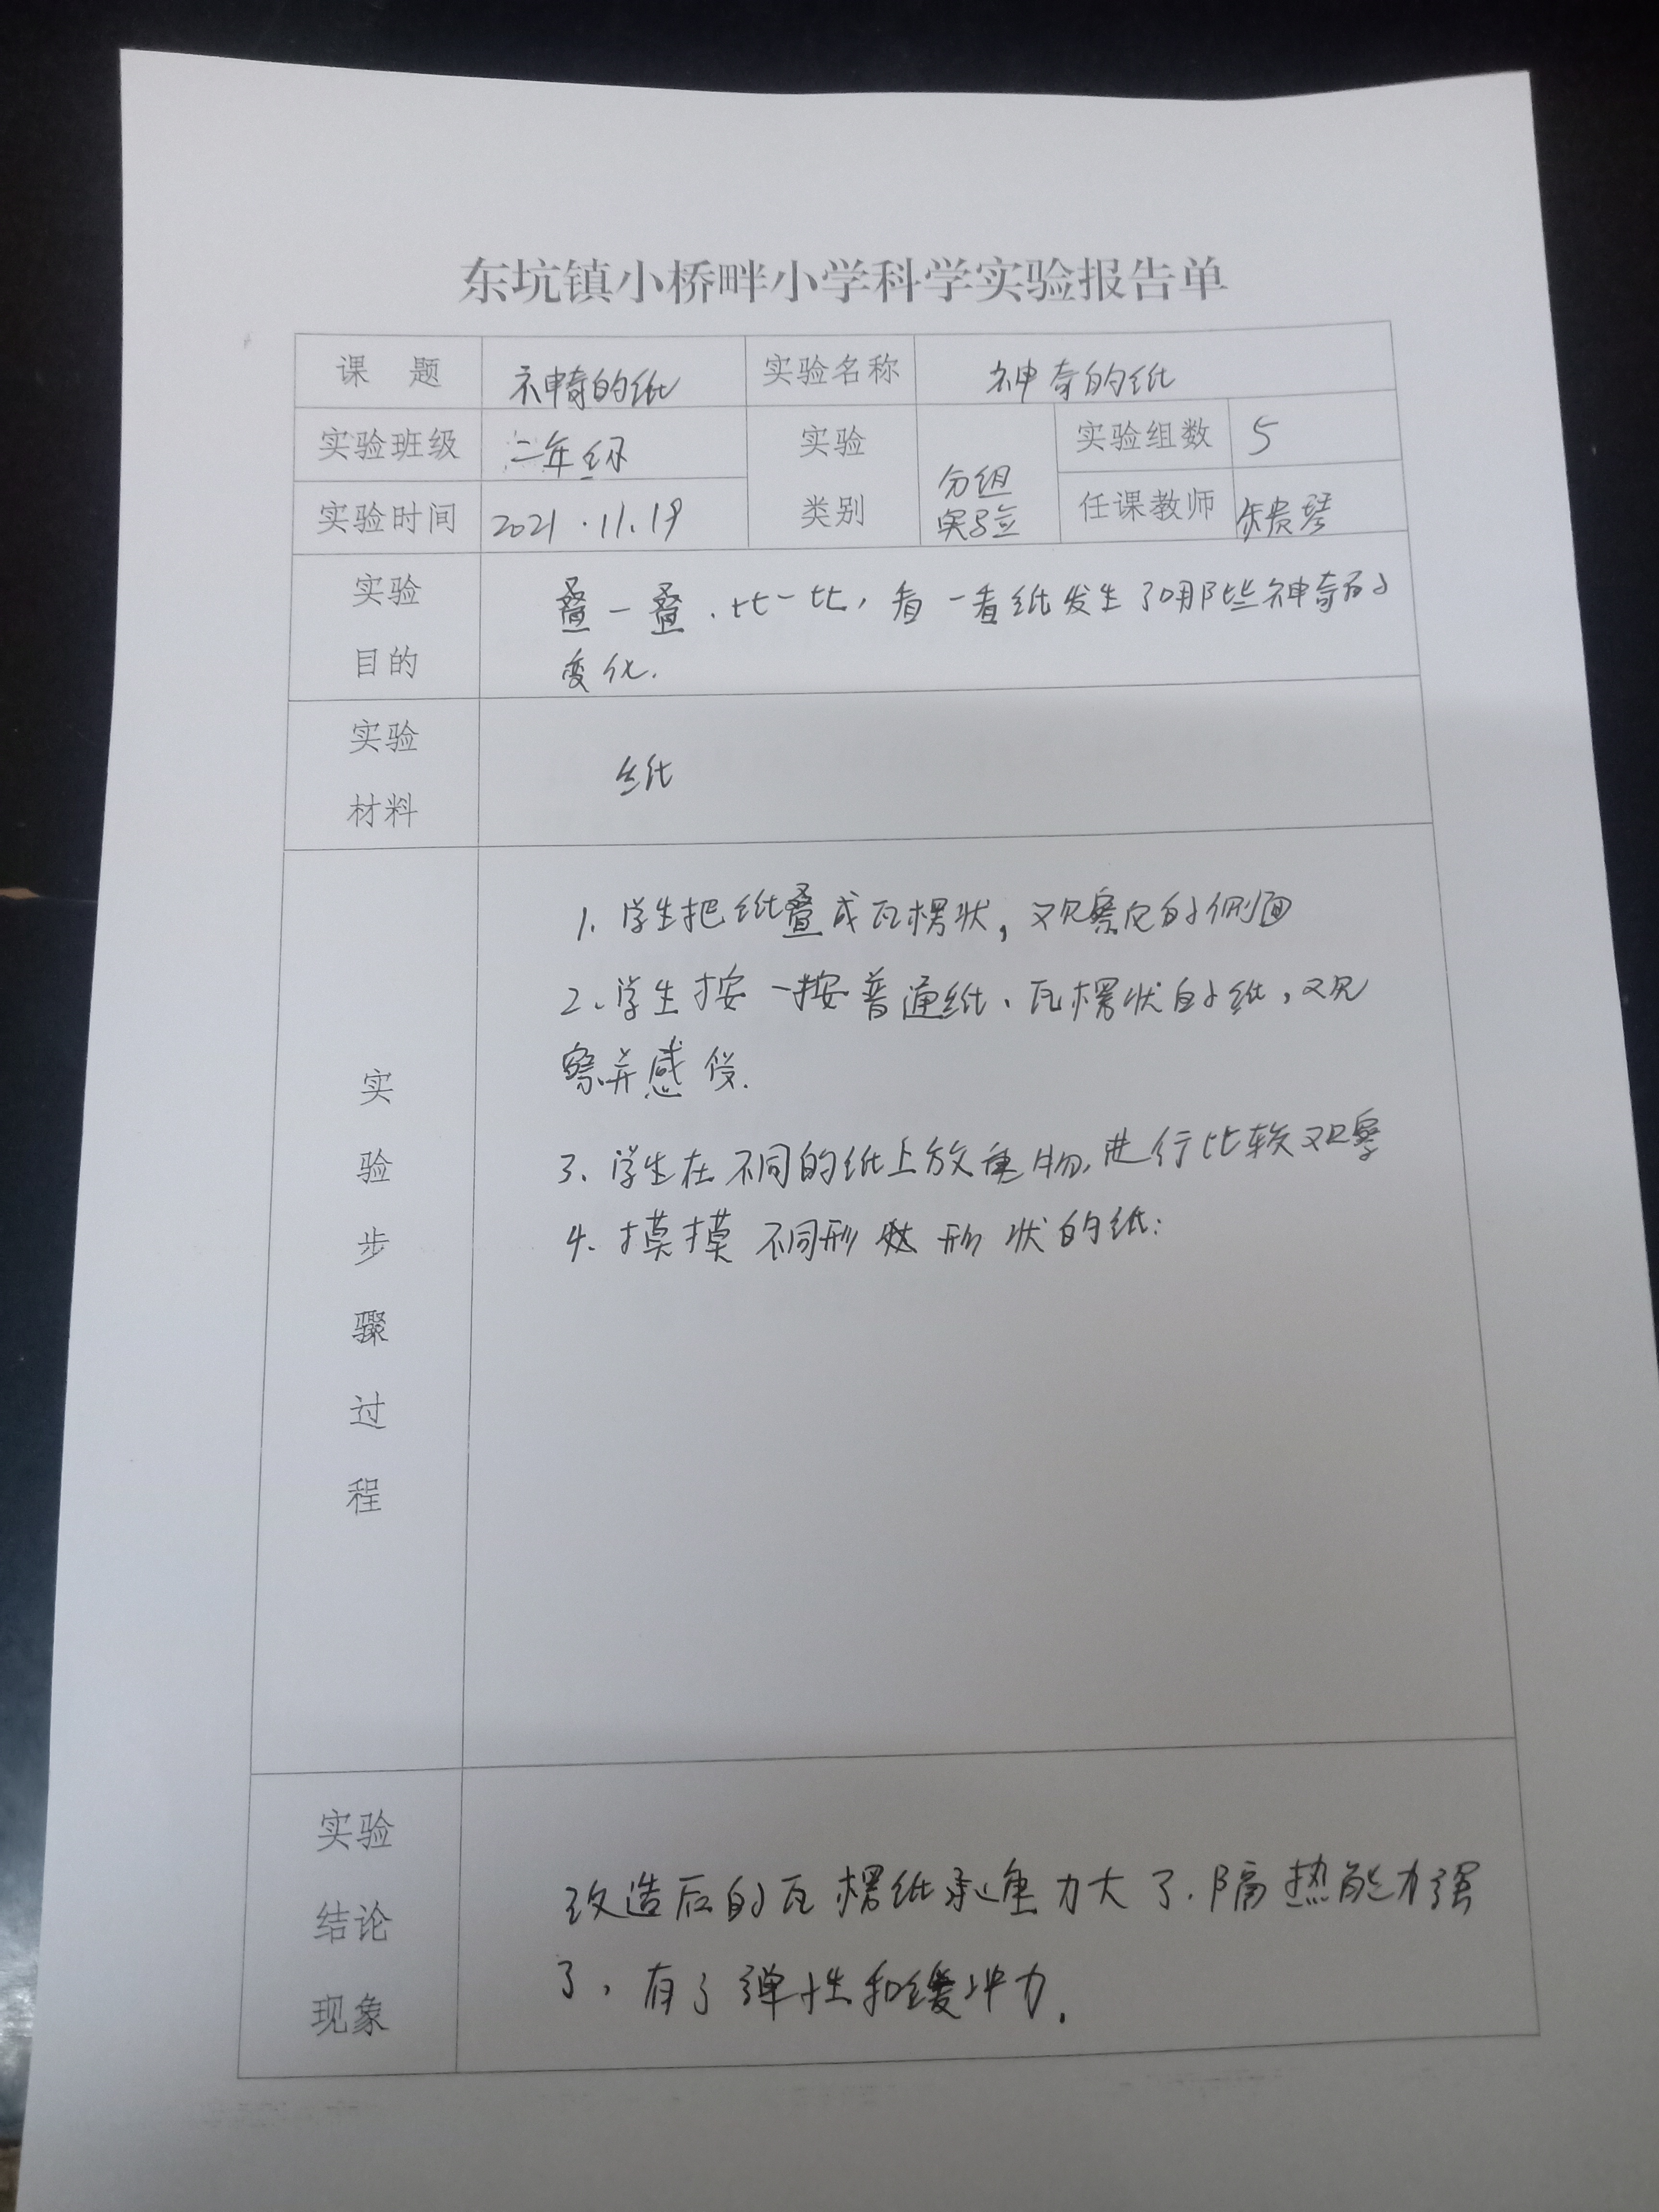 东坑镇小桥畔小学科学实验报告单
课 题 神奇的纸 实验名称 神奇的纸
实验班级 二年级 实验类别 分组实验 实验组数 5
实验时间 2021.11.19 任课教师 朱贵琴
实验目的 叠一叠.比一比,看一看纸发生了哪些神奇的
变化.
实验材料 纸
实验步骤过程
1.学生把纸叠成瓦楞状,观察它的侧面
2.学生按一按普通纸、瓦楞状的纸,观
察并感受.
3.学生在不同的纸上放重物,进行比较观察
4.摸摸不同形 形状的纸:
实验结论现象
改造后的瓦楞纸承重力大了.隔热能力强
了,有了弹性和缓冲力.